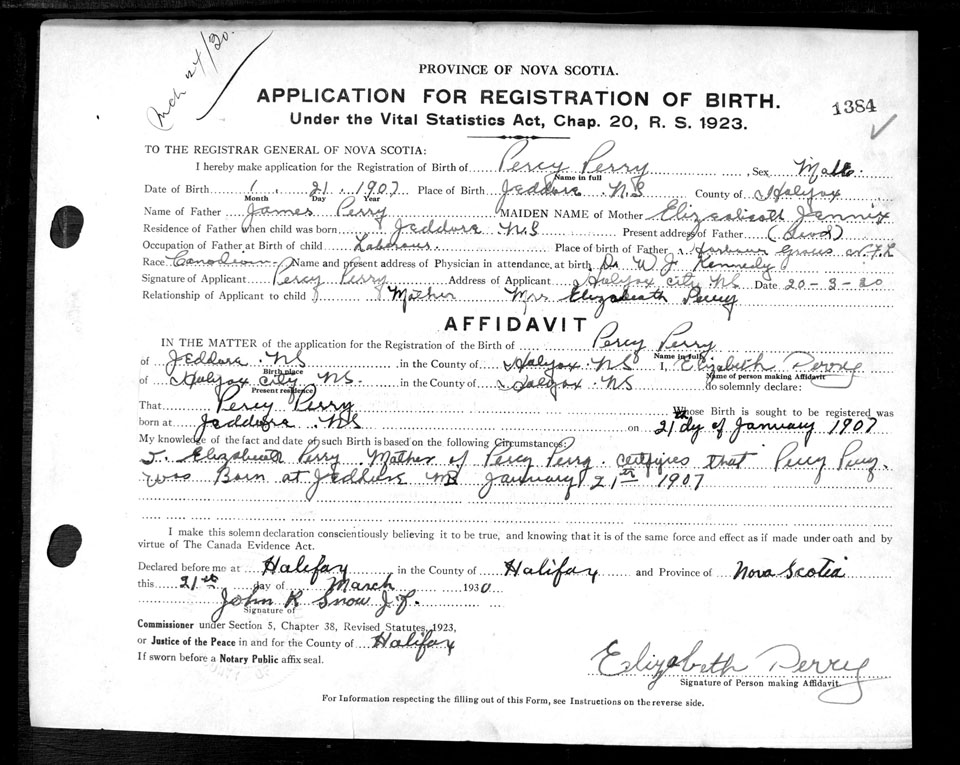 Mch 24/30.
PROVINCE OF NOVA SCOTIA.
APPLICATION FOR REGISTRATION OF BIRTH.
1384
Under the Vital Statistics Act, Chap. 20, R. S. 1923.
TO THE REGISTRAR GENERAL OF NOVA SCOTIA:
I hereby make application for the Registration of Birth of Percy Perry Sex Male.
Name in full
Date of Birth 1 . 21 . 1907 Place of Birth Jeddore N.S County of Halifax
Month Day Year
Name of Father James Perry MAIDEN NAME of Mother Elizabeath Jennix
Residence of Father when child was born Jeddore N.S Present address of Father (Dead)
Occupation of Father at Birth of child Laborour. Place of birth of Father Harbour Grace N.F.L
Race Canadian Name and present address of Physician in attendance, at birth Dr W J Kennedy
Signature of Applicant Percy Perry Address of Applicant Halifax City NS Date 20-3-30
Relationship of Applicant to child Mother Mrs Elizabeath Perry
AFFIDAVIT
IN THE MATTER of the application for the Registration of the Birth of Percy Perry
Name in full
of Jeddore NS in the County of Halifax NS I, Elizabeth Perry
Birth place Name of person making Affidavit
of Halifax City NS. in the County of Halifax NS do solemnly declare:
Present residence
That Percy Perry Whose Birth is sought to be registered was
born at Jeddore NS on 21 dy of January 1907
My knowledge of the fact and date of such Birth is based on the following Circumstances:
I. Elizabeath Perry Mother of Percy Perry certifies that Percy Perry
was Born at Jeddore NS January 21st 1907
I make this solemn declaration conscientiously believing it to be true, and knowing that it is of the same force and effect as if made under oath and by
virtue of The Canada Evidence Act.
Declared before me at Halifax in the County of Halifax and Province of Nova Scotia
this 21st day of March 1930
John R Snow J.P.
Signature of
Commissioner under Section 5, Chapter 38, Revised Statutes, 1923,
or Justice of the Peace in and for the County of Halifax
If sworn before a Notary Public affix seal.
Elizabeth Perry
Signature of Person making Affidavit
For Information respecting the filling out of this Form, see Instructions on the reverse side.